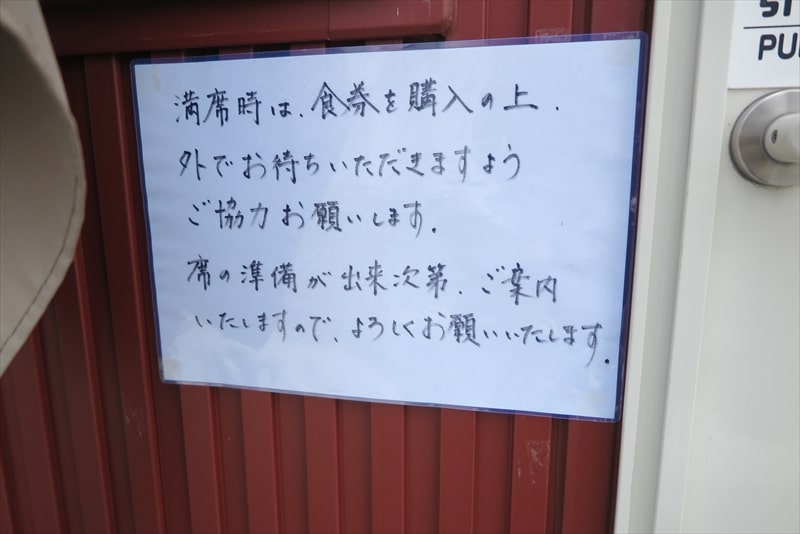 満席時は、食券を購入の上、
外でお待ちいただきますよう
ご協力お願いします。
席の準備が出来次第、ご案内
いたしますので、よろしくお願いいたします。
PU